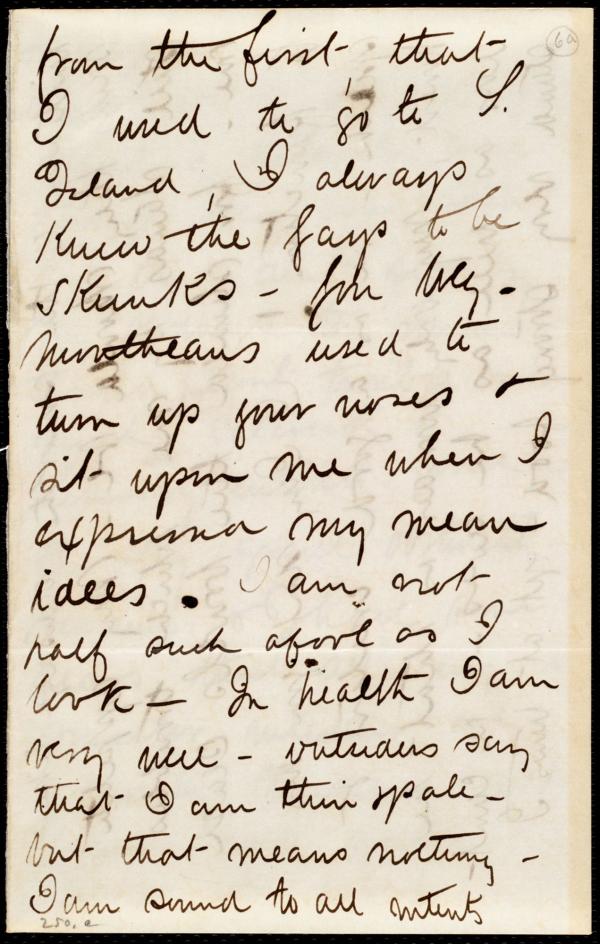 6a
from the first, that
I used to go to S.
Island, I always
knew the Gays to be
skunks - you Wey-
moutheans used to
turn up your noses &
sit upon me when I
expressed my mean
idees. I am not
half such a fool as I
look - In health I am
very well - outsiders say
that I am thin & pale -
but that means nothing -
I am sound to all intents